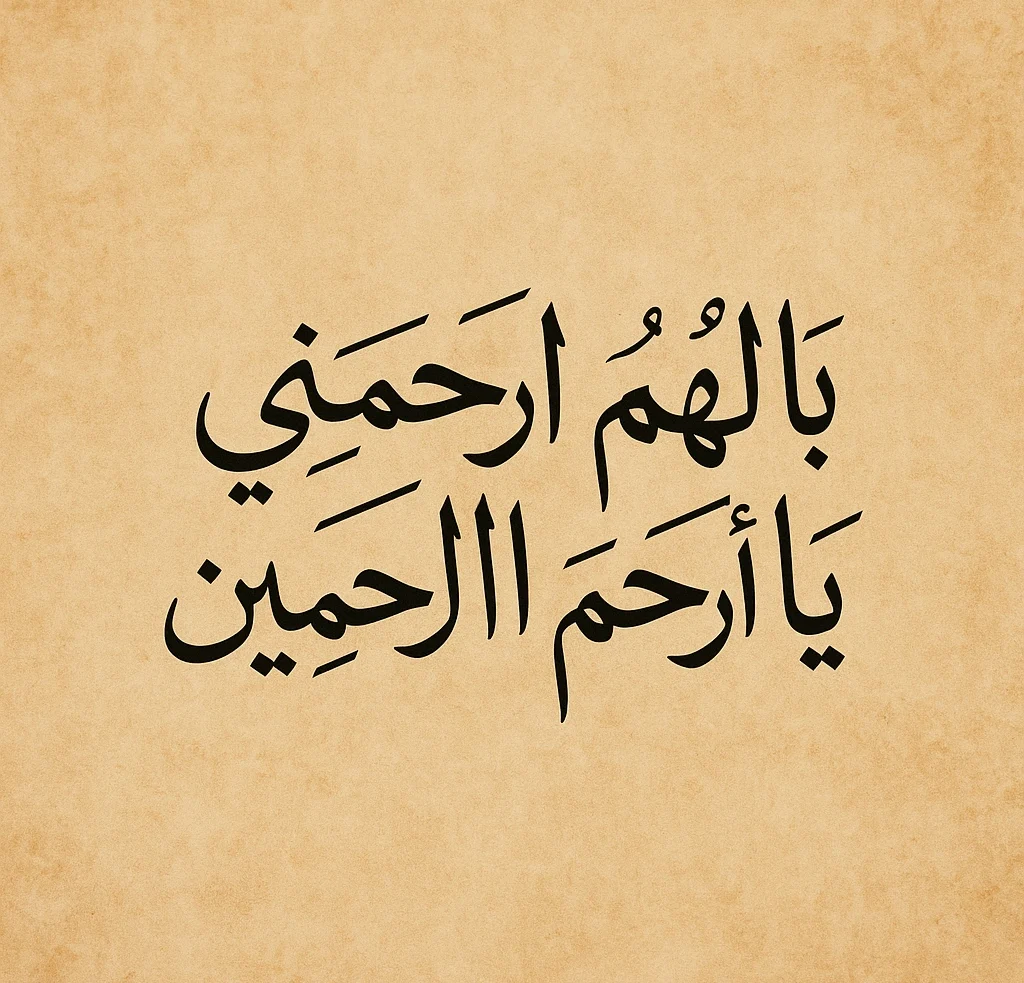 بَالهُمُ ارحَمَنِي
يَا أرحَمَ االرحَمِين